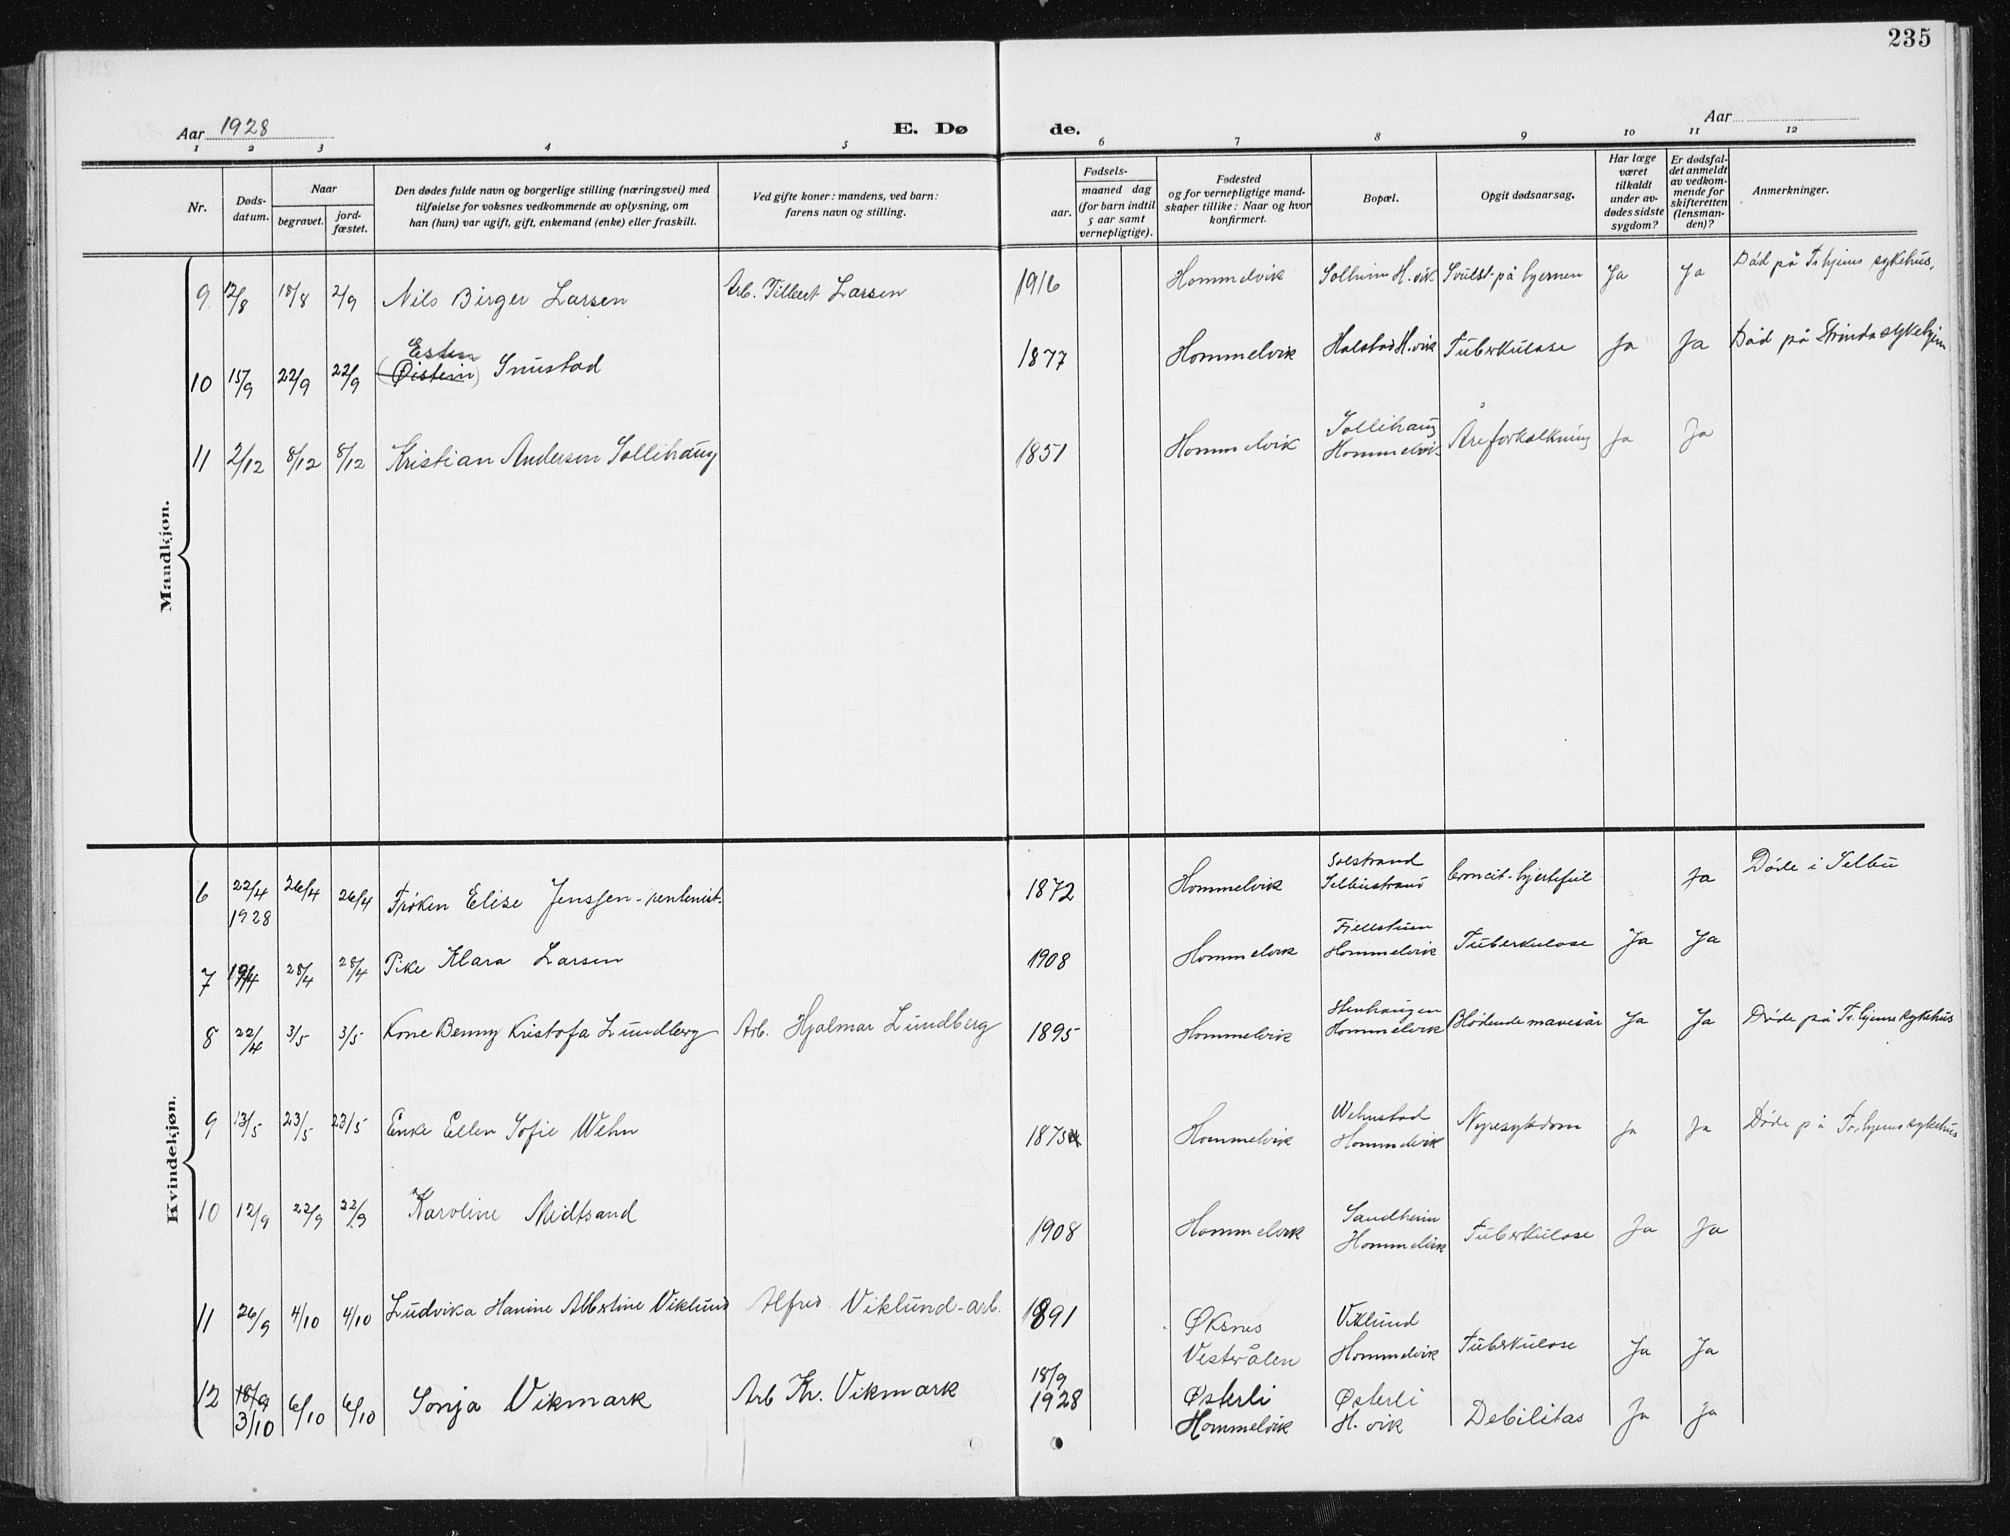 235
Aar 1928
E. Dø
de.
Aar
1 2 3 4 5 6 7 8 9 10 11 12
Nr.
Døds-
datum.
Naar
begravet.
jord-
fæstet.
Den dødes fulde navn og borgerlige stilling (næringsvei) med
tilføielse for voksnes vedkommende av oplysning, om
han (hun) var ugift, gift, enkemand (enke) eller fraskilt.
Ved gifte koner: mandens, ved barn:
farens navn og stilling.
Fødsels-
aar.
maaned dag
(for barn indtil
5 aar samt
vernepligtige).
Fødested
og for vernepligtige mand-
skaper tillike: Naar og hvor
konfirmert.
Bopæl.
Opgit dødsaarsag.
Har læge
været
tilkaldt
under av-
dødes sidste
sygdom?
Er dødsfal-
det anmeldt
av vedkom-
mende for
skifteretten
(lensman-
den)?
Anmerkninger.
Mandkjøn.
9 12/8 18/8 2/9 Nils Birger Larsen Arb. Tilbert Larsen 1916 Hommelvik Solheim H.vik Svulst på hjernen Ja Ja Död på Tr.hjems sykehus.
Esten
10 15/9 22/9 22/9 (Öistein) Snustad 1877 Hommelvik Halstad H.vik Tüberkulose Ja Ja Död på Strinda sykehjem
Sollihaug
11 2/12 8/12 8/12 Kristian Andersen Sollihaug 1851 Hommelvik Hommelvik Åreforkalkning Ja Ja
Kvindekjøn.
Solstrand
6 22/4 26/4 26/4 Frøken Elise Jenssen - rentenist. 1872 Hommelvik Selbustrand hjertefeil Ja Døde i Selbu
1928
Fjellstuen
7 19/4 28/4 28/4 Pike Klara Larsen 1908 Hommelvik Hommelvik Tuberkulose Ja Ja
Stenhaugen
8 22/4 3/5 3/5 Kone Benny Kristofa Lundberg Arb. Hjalmar Lundberg 1895 Hommelvik Hommelvik Blödende mavesår Ja Ja Döde på Tr.hjems sykehus
Wehnstad
9 13/5 23/5 23/5 Enke Ellen Sofie Wehn 1875 Hommelvik Hommelvik Nyresykdom Ja Ja Døde på Tr.hjems sykehus
Sandheim
10 12/9 22/9 22/9 Karoline Midtsand 1908 Hommelvik Hommelvik Tuberkulose Ja Ja
11 26/9 4/10 4/10 Ludvika Hanine Albertine Viklund Alfred Viklund - arb. 1891 Øksnes Viklund
Vesterålen Hommelvik Tuberkulose Ja Ja
12 18/9 6/10 6/10 Sonja Vikmark Arb Kr. Vikmark 18/9 Østerli Østerli
3/10 1928 Hommelvik H.vik Debilitas Ja Ja